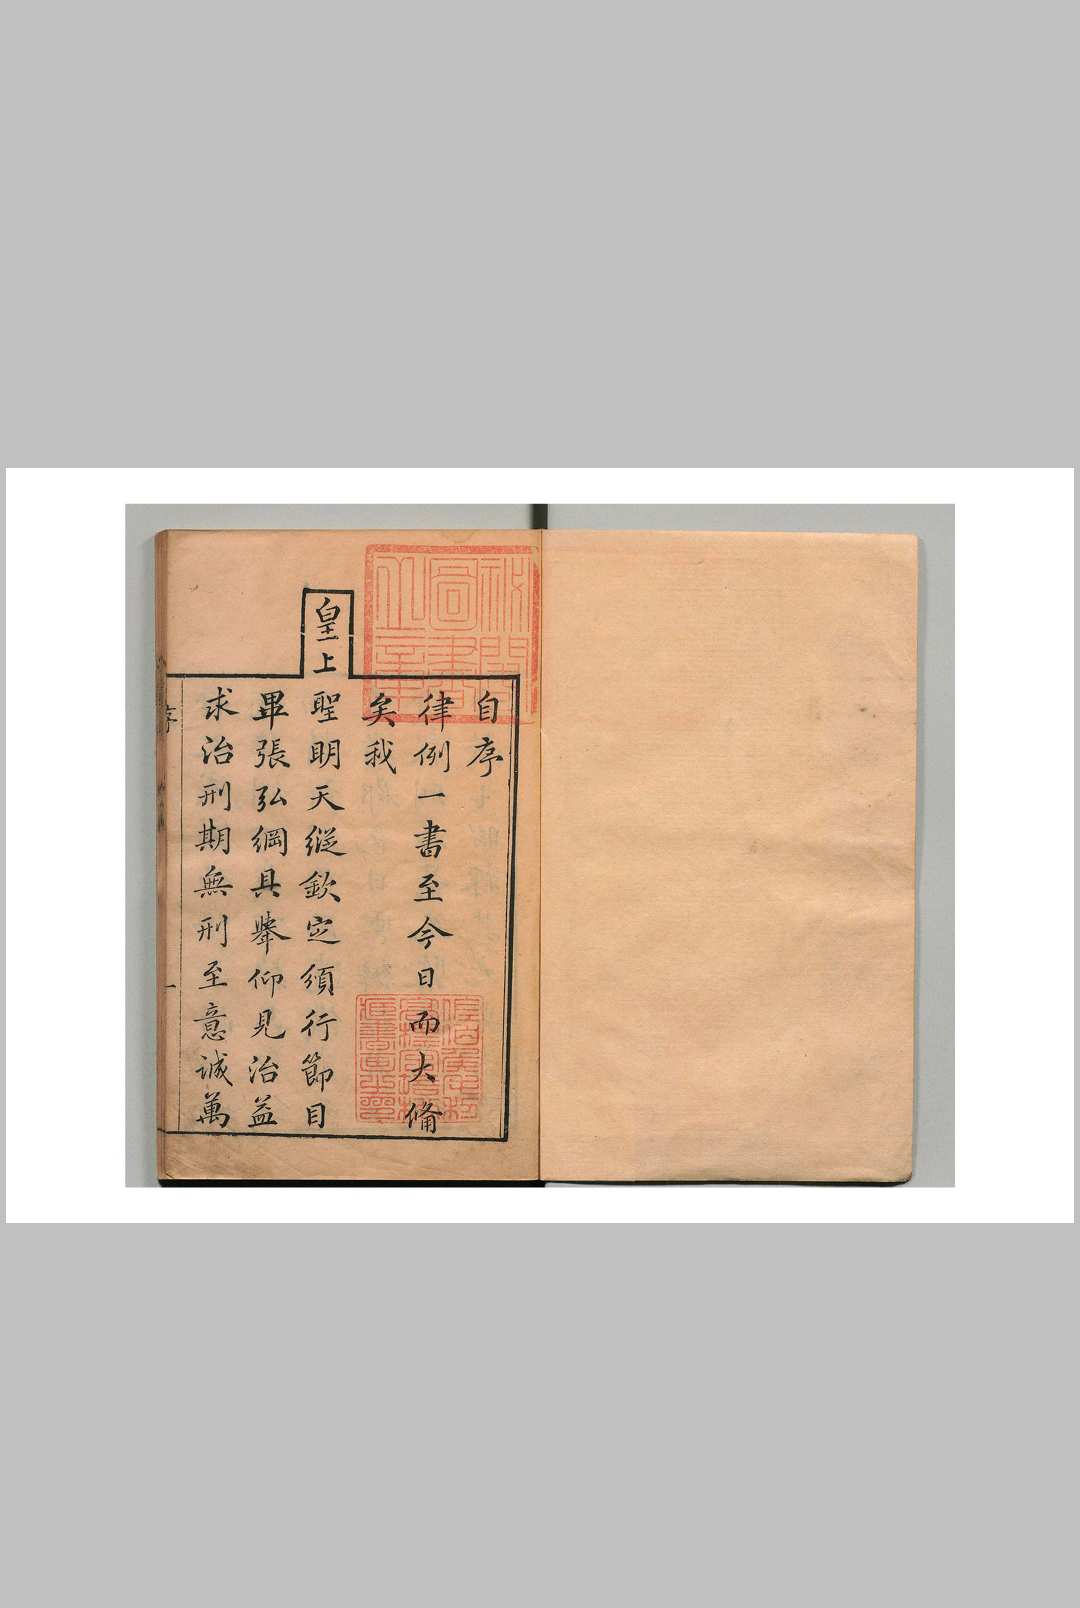 自序
律例一書至今日而大備
矣我
皇上
聖明天縱欽定頒行節目
畢張弘綱具舉仰見治益
求治刑期無刑至意誠萬
序
一
秘閣圖書之章